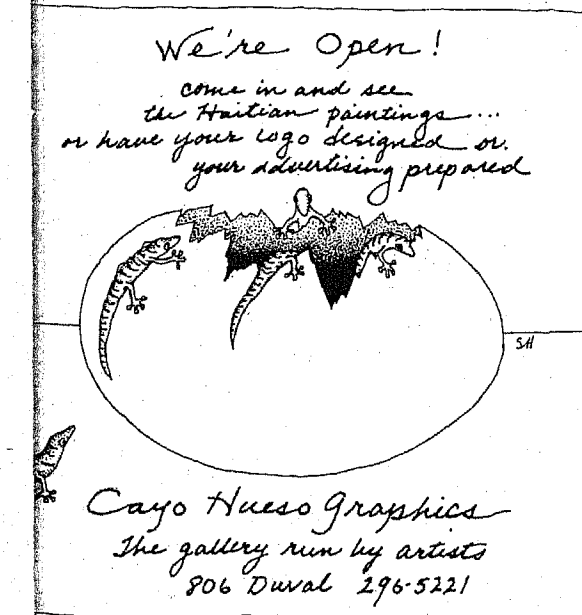 We're Open!
come in and see
the Haitian paintings...
or have your logo designed or
your advertising prepared
SH
Cayo Hueso Graphics
The gallery run by artists
806 Duval 296-5221